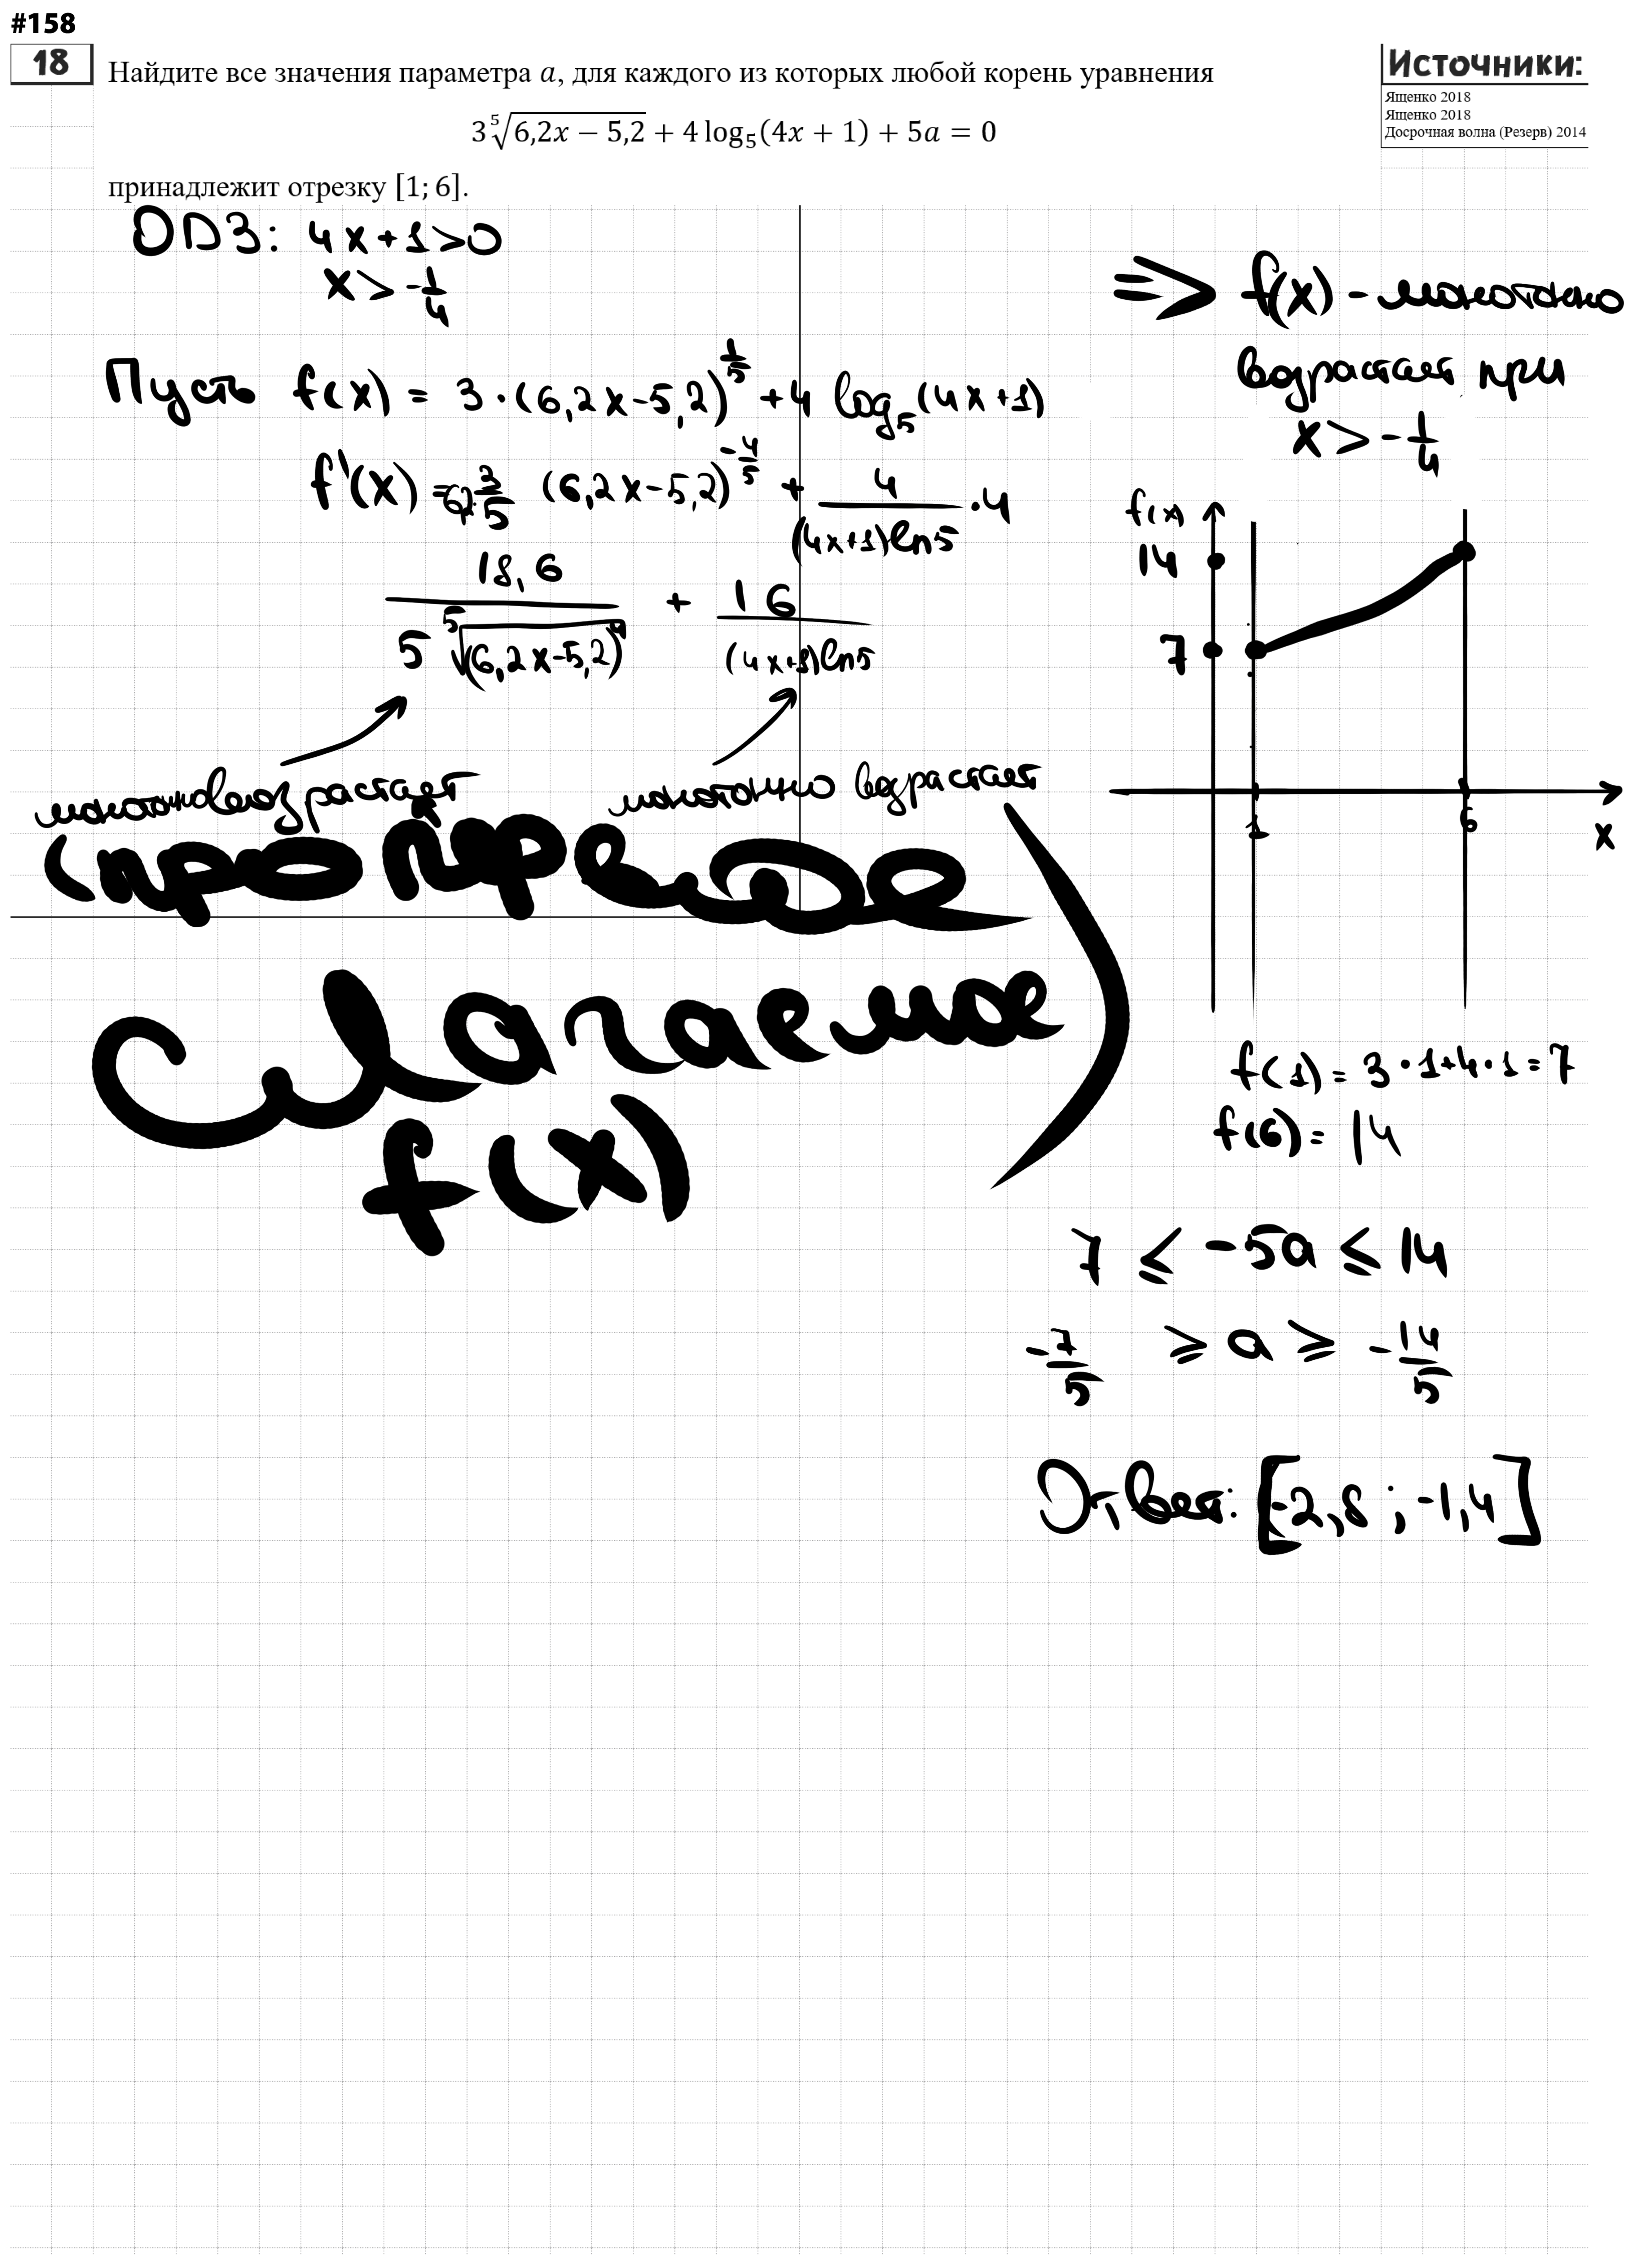 #158
18
Найдите все значения параметра a, для каждого из которых любой корень уравнения
3⁵√(6,2x − 5,2) + 4 log₅(4x + 1) + 5a = 0
принадлежит отрезку [1; 6].
Источники:
Ященко 2018
Ященко 2018
Досрочная волна (Резерв) 2014
ОДЗ: 4x+1>0
x > -1/4
Пусть f(x) = 3·(6,2x-5,2)^(1/5) + 4 log₅(4x+1)
f'(x) = 6,2·3/5 (6,2x-5,2)^(-4/5) + 4/((4x+1)ln5) ·4
18,6/(5 ⁵√(6,2x-5,2)⁴) + 16/((4x+1)ln5)
монотонно возрастает монотонно возрастает
(про первое
слагаемое
f(x))
=> f(x) - монотонно
возрастает при
x > -1/4
f(x)
14
7
1
6
x
f(1) = 3·1+4·1=7
f(6) = 14
7 ≤ -5a ≤ 14
-7/5 ≥ a ≥ -14/5
Ответ: [-2,8 ; -1,4]